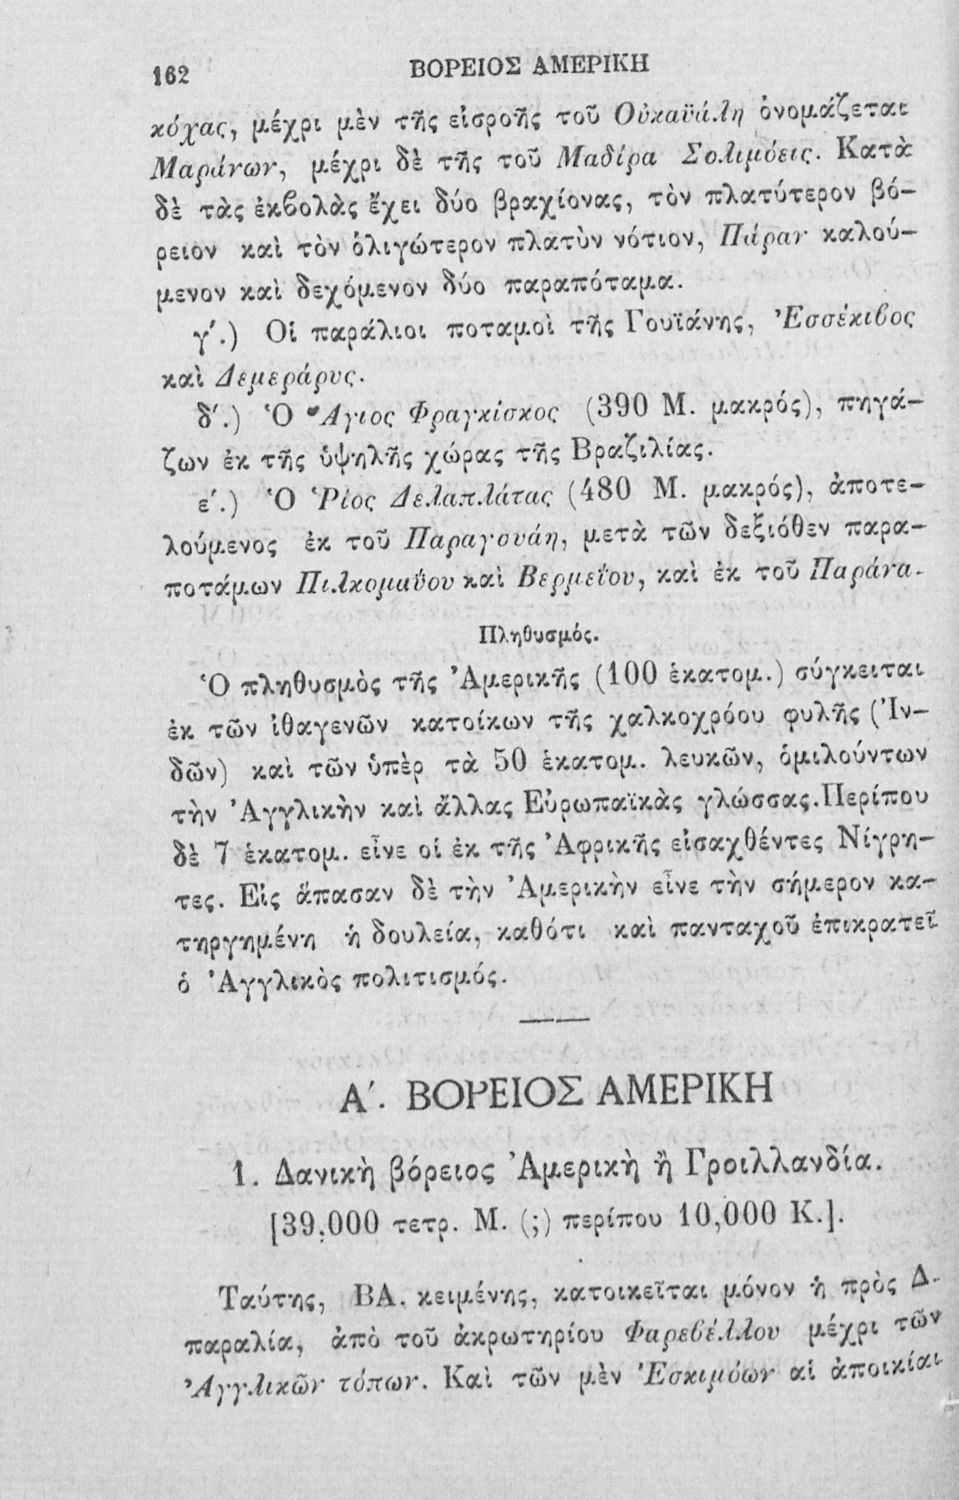 162 ΒΟΡΕΙΟΣ ΑΜΕΡΙΚΗ
κόχας, μέχρι μὲν τῆς εἰσροῆς τοῦ Οὐκαϋάλη ὀνομάζεται
Μαράνων, μέχρι δὲ τῆς τοῦ Μαδίρα Σολιμόεις. Κατὰ
δὲ τὰς ἐκβολὰς ἔχει δύο βραχίονας, τὸν πλατύτερον βό-
ρειον καὶ τὸν ὀλιγώτερον πλατὺν νότιον, Πάραν καλού-
μενον καὶ δεχόμενον δύο παραπόταμα.
γ΄.) Οἱ παράλιοι ποταμοὶ τῆς Γουϊάνης, Ἐσσέκιβος
καὶ Δεμεράρυς.
δ΄.) Ὁ Ἅγιος Φραγκίσκος (390 Μ. μακρός), πηγά-
ζων ἐκ τῆς ὑψηλῆς χώρας τῆς Βραζιλίας.
ε΄.) Ὁ Ῥίος Δελαπλάτας (480 Μ. μακρός), ἀποτε-
λούμενος ἐκ τοῦ Παραγουάη, μετὰ τῶν δεξιόθεν παρα-
ποτάμων Πιλκομαΰου καὶ Βερμεΐου, καὶ ἐκ τοῦ Παράνα.
Πληθυσμός.
Ὁ πληθυσμὸς τῆς Ἀμερικῆς (100 ἑκατομ.) σύγκειται
ἐκ τῶν ἰθαγενῶν κατοίκων τῆς χαλκοχρόου φυλῆς (Ἰν-
δῶν) καὶ τῶν ὑπὲρ τὰ 50 ἑκατομ. λευκῶν, ὁμιλούντων
τὴν Ἀγγλικὴν καὶ ἄλλας Εὐρωπαϊκὰς γλώσσας. Περίπου
δὲ 7 ἑκατομ. εἶνε οἱ ἐκ τῆς Ἀφρικῆς εἰσαχθέντες Νίγρη-
τες. Εἰς ἅπασαν δὲ τὴν Ἀμερικὴν εἶνε τὴν σήμερον κα-
τηργημένη ἡ δουλεία, καθότι καὶ πανταχοῦ ἐπικρατεῖ
ὁ Ἀγγλικὸς πολιτισμός.
Α΄. ΒΟΡΕΙΟΣ ΑΜΕΡΙΚΗ
1. Δανικὴ βόρειος Ἀμερικὴ ἢ Γροιλλανδία.
[39,000 τετρ. Μ. (;) περίπου 10,000 Κ.].
Ταύτης, ΒΑ. κειμένης, κατοικεῖται μόνον ἡ πρὸς Δ.
παραλία, ἀπὸ τοῦ ἀκρωτηρίου Φαρεβέλλου μέχρι τῶν
Ἀγγλικῶν τόπων. Καὶ τῶν μὲν Ἐσκιμόων αἱ ἀποικίαι